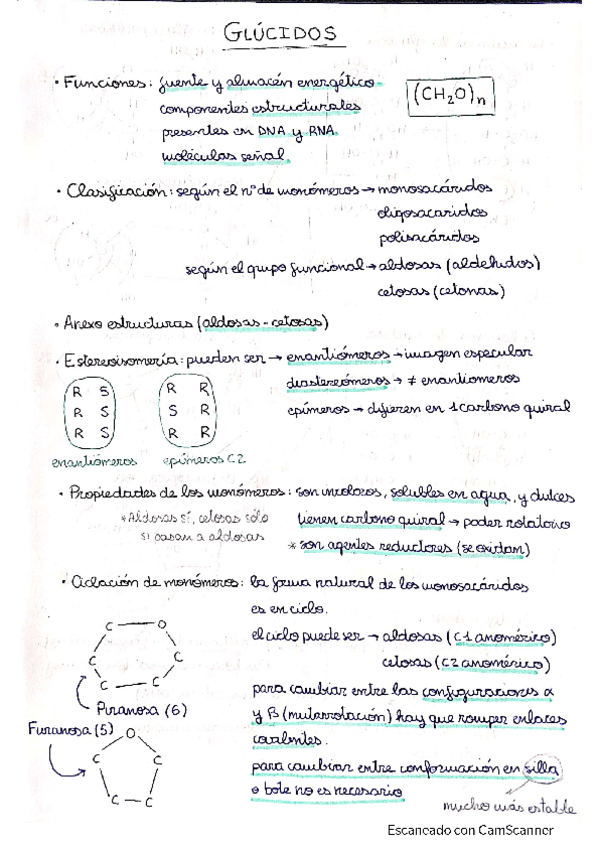 GLÚCIDOS
• Funciones: fuente y almacén energético
(CH2O)n
componentes estructurales
presentes en DNA y RNA
moléculas señal.
• Clasificación: según el nº de monómeros → monosacáridos
oligosacaridos
polisacáridos
según el grupo funcional → aldosas (aldehidos)
cetosas (cetonas)
• Anexo estructuras (aldosas - cetosas)
• Estereoisomería: pueden ser → enantiómeros → imagen especular
diastereómeros → ≠ enantiomeros
epímeros → difieren en 1 carbono quiral
R S R R
R S S R
R S R R
enantiómeros epímeros C2
• Propiedades de los monómeros: son incoloros, solubles en agua, y dulces
* Aldosas sí, cetosas sólo
si pasan a aldosas
tienen carbono quiral → poder rotatorio
* son agentes reductores (se oxidan)
• Ciclación de monómeros: la forma natural de los monosacáridos
es en ciclo.
el ciclo puede ser → aldosas (C1 anomérico)
cetosas (C2 anomérico)
para cambiar entre las configuraciones α
y β (mutarrotación) hay que romper enlaces
covalentes.
para cambiar entre conformación en silla
o bote no es necesario
mucho más estable
C O
C C
C C
Piranosa (6)
Furanosa (5)
O
C C
C C
Escaneado con CamScanner